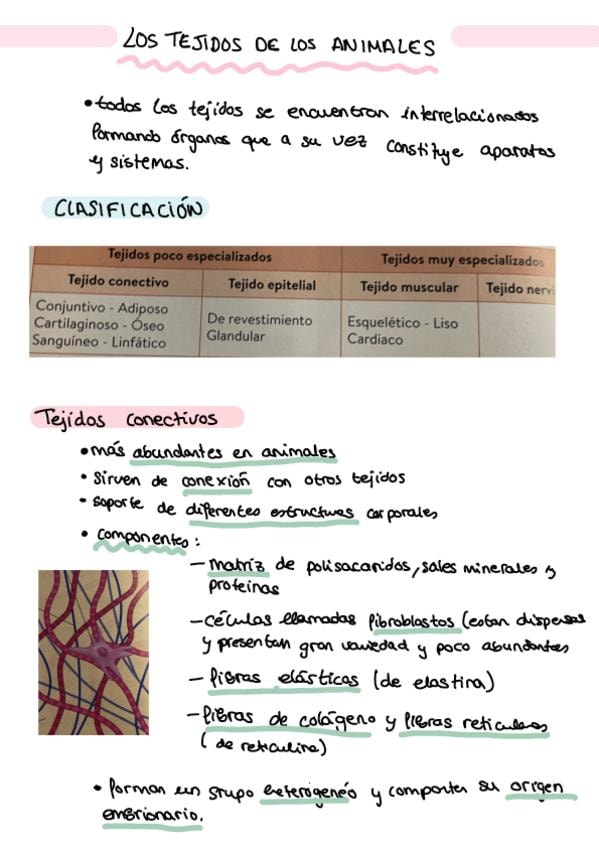 LOS TEJIDOS DE LOS ANIMALES
• todos los tejidos se encuentran interrelacionados
formando órganos que a su vez constituye aparatos
y sistemas.
CLASIFICACIÓN
Tejidos poco especializados Tejidos muy especializados
Tejido conectivo Tejido epitelial Tejido muscular Tejido nervi
Conjuntivo - Adiposo
Cartilaginoso - Óseo
Sanguíneo - Linfático
De revestimiento
Glandular
Esquelético - Liso
Cardiaco
Tejidos conectivos
• más abundantes en animales
• sirven de conexión con otros tejidos
• soporte de diferentes estructuras corporales
• componentes:
— matriz de polisacaridos, sales minerales y
proteinas
— células llamadas fibroblastos (estan dispersas
y presentan gran variedad y poco abundantes
— fibras elásticas (de elastina)
— fibras de colágeno y fibras reticulares
(de reticulina)
• forman un grupo heterogeneó y comparten su origen
embrionario.